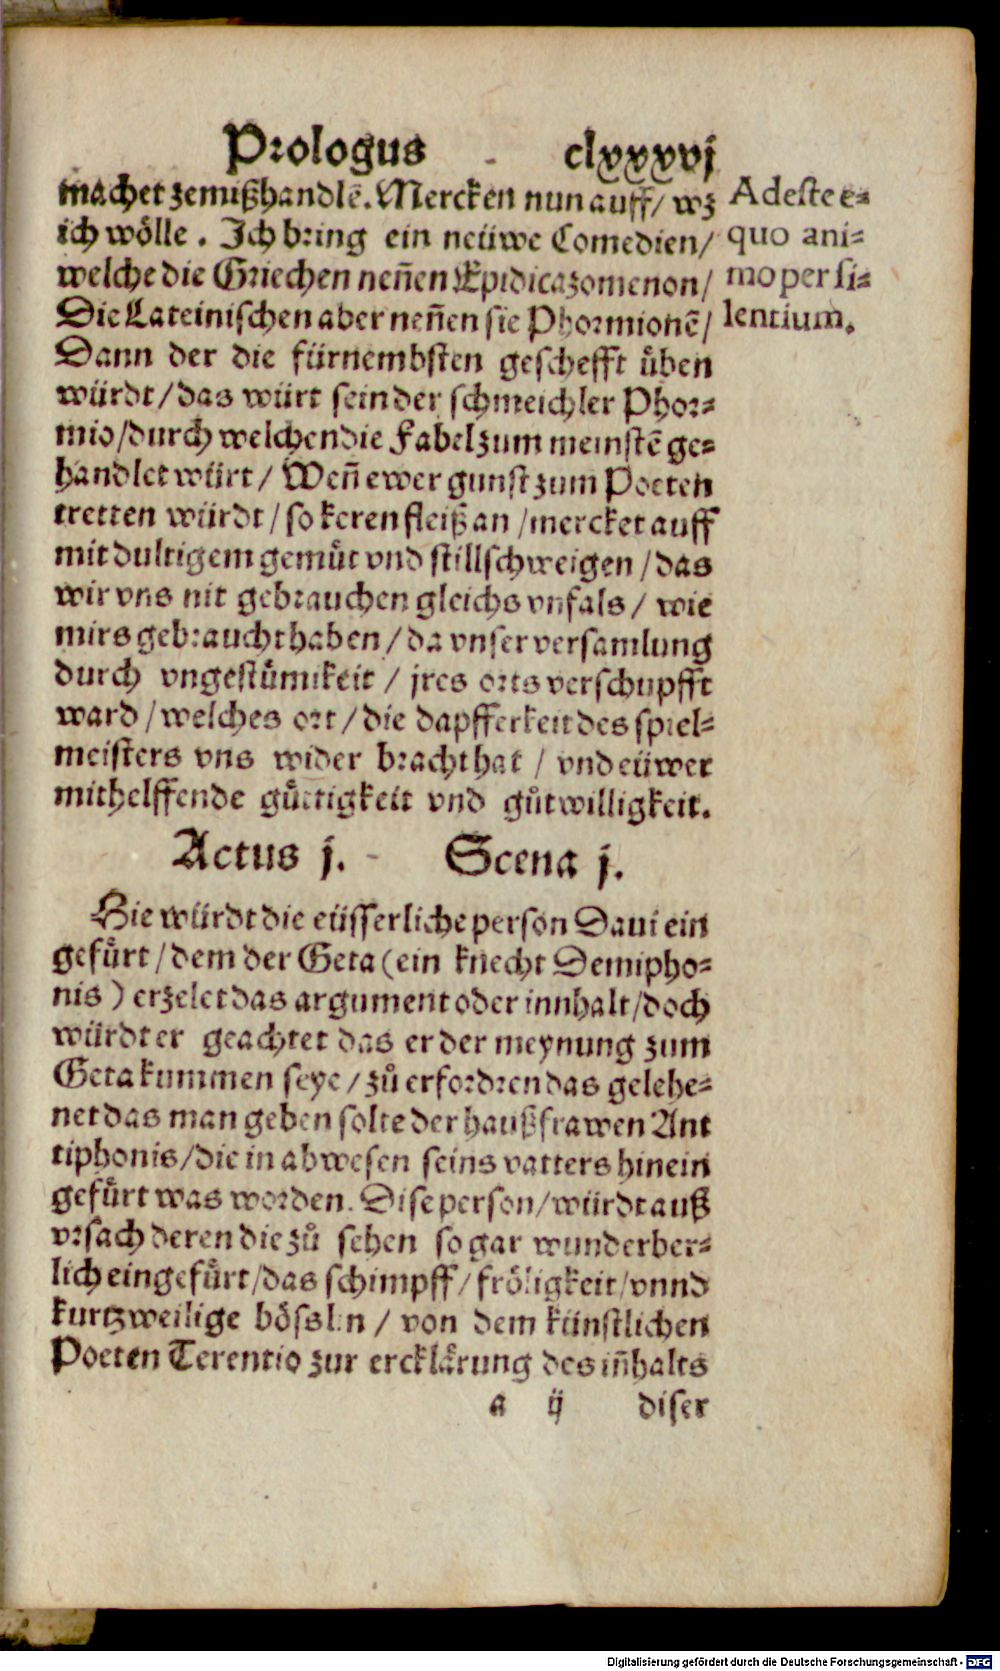 Prologus clxxxvj
machet zemißhandlē. Mercken nun auff/ wz
ich wölle. Ich bring ein neüwe Comedien/
welche die Griechen neñen Epidicazomenon/
Die Lateinischen aber neñen sie Phormionē/
Dann der die fürnembsten geschefft üben
würdt/das würt sein der schmeichler Phor=
mio/durch welchen die Fabel zum meinstē ge=
handlet würt/ Weñ ewer gunst zum Poeten
tretten würdt/ so keren fleiß an/mercket auff
mit dultigem gemüt vnd stillschweigen/das
wir vns nit gebrauchen gleichs vnfals/ wie
mirs gebraucht haben/da vnser versamlung
durch vngestümikeit/ jres orts verschupfft
ward/welches ort/die dapfferkeit des spiel=
meisters vns wider bracht hat/ vnd eüwer
mithelffende gůttigkeit vnd gůtwilligkeit.
Adeste e=
quo ani=
mo per si=
lentium.
Actus j. Scena j.
Hie würdt die eüsserliche person Daui ein
gefürt/dem der Geta (ein knecht Demipho=
nis) erzelet das argument oder innhalt/doch
würdt er geachtet das er der meynung zum
Geta kummen seye/zů erfordren das gelehe=
net das man geben solte der haußfrawen Ant
tiphonis/die in abwesen seins vatters hinein
gefürt was worden. Dise person/würdt auß
vrsach deren die zů sehen so gar wunderber=
lich eingefürt/das schimpff/fröligkeit/vnnd
kurtzweilige bösslin/ von dem künstlichen
Poeten Terentio zur ercklärung des iñhalts
a ij diser
Digitalisierung gefördert durch die Deutsche Forschungsgemeinschaft - DFG